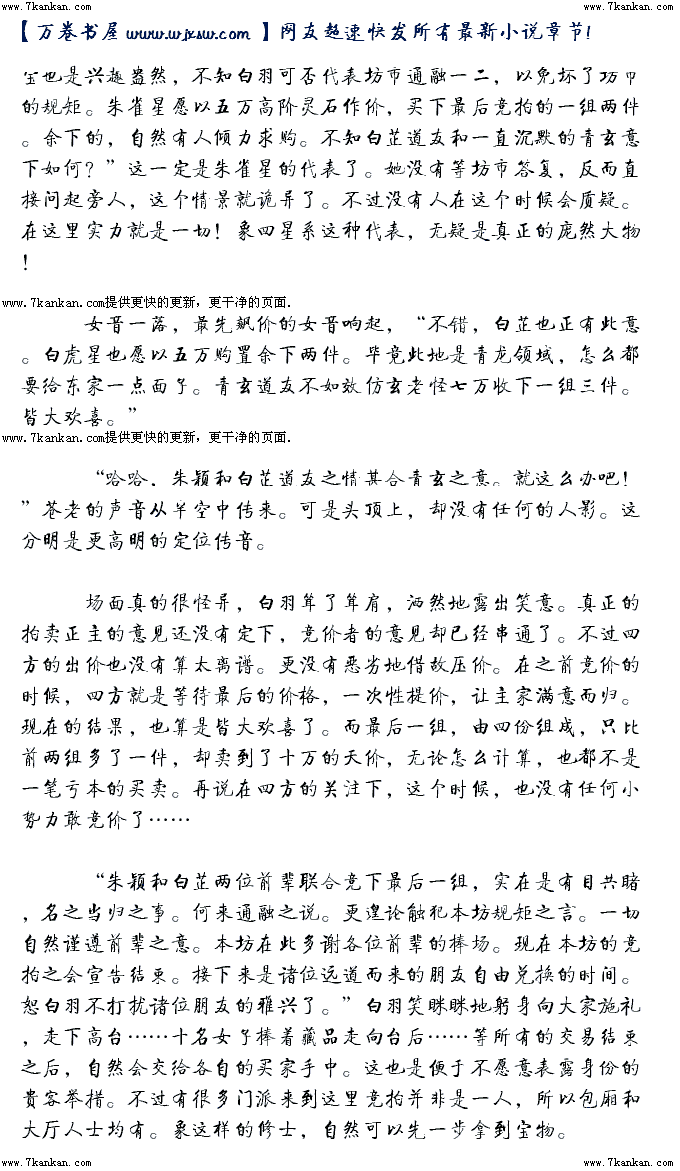 www.7kankan.com www.7kankan.com
【万卷书屋 www.wjxsw.com 】网友超速快发所有最新小说章节!
宝也是兴趣盎然，不知白羽可否代表坊市通融一二，以免坏了坊市
的规矩。朱雀星愿以五万高阶灵石作价，买下最后竞拍的一组两件
。余下的，自然有人倾力求购。不知白芷道友和一直沉默的青玄意
下如何？”这一定是朱雀星的代表了。她没有等坊市答复，反而直
接问起旁人，这个情景就诡异了。不过没有人在这个时候会质疑。
在这里实力就是一切！象四星系这种代表，无疑是真正的庞然大物
！
www.7kankan.com提供更快的更新，更干净的页面.
女音一落，最先飙价的女音响起，“不错，白芷也正有此意
。白虎星也愿以五万购置余下两件。毕竟此地是青龙领域，怎么都
要给东家一点面子。青玄道友不如效仿玄老怪七万收下一组三件。
皆大欢喜。”
www.7kankan.com提供更快的更新，更干净的页面.
“哈哈．朱颖和白芷道友之情甚合青玄之意。就这么办吧！
”苍老的声音从半空中传来。可是头顶上，却没有任何的人影。这
分明是更高明的定位传音。
场面真的很怪异，白羽耸了耸肩，洒然地露出笑意。真正的
拍卖正主的意见还没有定下，竞价者的意见却已经串通了。不过四
方的出价也没有算太离谱。更没有恶劣地借故压价。在之前竞价的
时候，四方就是等待最后的价格，一次性提价，让主家满意而归。
现在的结果，也算是皆大欢喜了。而最后一组，由四份组成，只比
前两组多了一件，却卖到了十万的天价，无论怎么计算，也都不是
一笔亏本的买卖。再说在四方的关注下，这个时候，也没有任何小
势力敢竞价了……
“朱颖和白芷两位前辈联合竞下最后一组，实在是有目共睹
，名之当归之事。何来通融之说。更遑论触犯本坊规矩之言。一切
自然谨遵前辈之意。本坊在此多谢各位前辈的捧场。现在本坊的竞
拍之会宣告结束。接下来是诸位远道而来的朋友自由兑换的时间。
恕白羽不打扰诸位朋友的雅兴了。”白羽笑眯眯地躬身向大家施礼
，走下高台……十名女子捧着藏品走向台后……等所有的交易结束
之后，自然会交给各自的买家手中。这也是便于不愿意表露身份的
贵客举措。不过有很多门派来到这里竞拍并非是一人，所以包厢和
大厅人士均有。象这样的修士，自然可以先一步拿到宝物。
www.7kankan.com www.7kankan.com